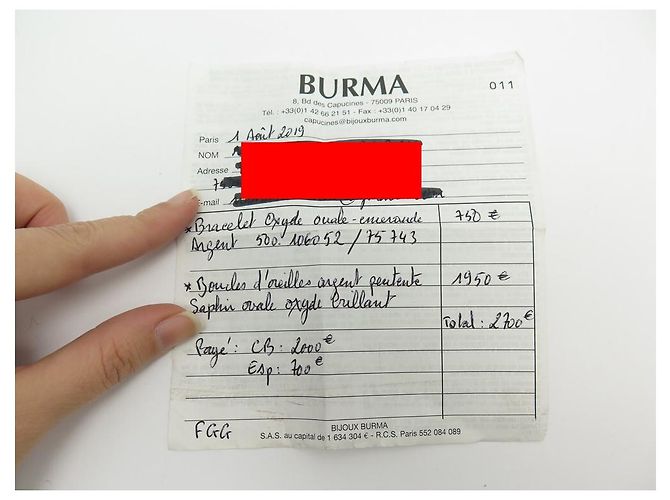 BURMA
011
8, Bd des Capucines - 75009 PARIS
Tél. : +33(0)1 42 66 21 51 - Fax : +33(0)1 40 17 04 29
capucines@bijouxburma.com
Paris 1 Août 2019
NOM
Adresse
E-mail
* Bracelet Oxyde ovale-emeraude 750 €
Argent 500. 106052 / 75743
* Boucles d'oreilles argent pentente 1950 €
Saphir ovale oxyde brillant
Total : 2700 €
Payé : CB : 2000 €
Esp : 700 €
FGG
BIJOUX BURMA
S.A.S. au capital de 1 634 304 € - R.C.S. Paris 552 084 089